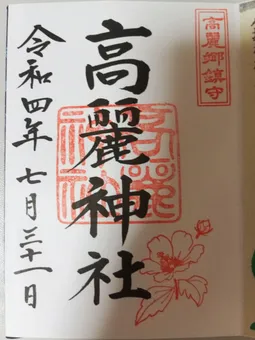 高麗郷鎮守
高麗神社
令和四年 七月三十一日